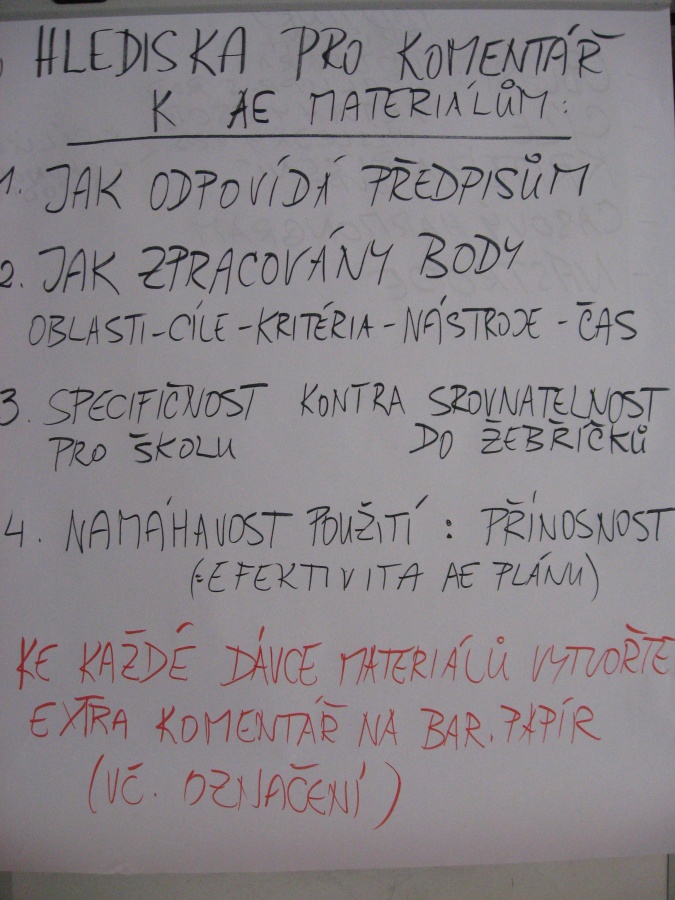 HLEDISKA PRO KOMENTÁŘ
K AE MATERIÁLŮM:
1. JAK ODPOVÍDÁ PŘEDPISŮM
2. JAK ZPRACOVÁNY BODY
OBLASTI-CÍLE-KRITÉRIA-NÁSTROJE-ČAS
3. SPECIFIČNOST KONTRA SROVNATELNOST
PRO ŠKOLU DO ŽEBŘÍČKŮ
4. NAMÁHAVOST POUŽITÍ : PŘÍNOSNOST
(=EFEKTIVITA AE PLÁNU)
KE KAŽDÉ DÁVCE MATERIÁLŮ VYTVOŘTE
EXTRA KOMENTÁŘ NA BAR. PAPÍR
(VČ. OZNAČENÍ)